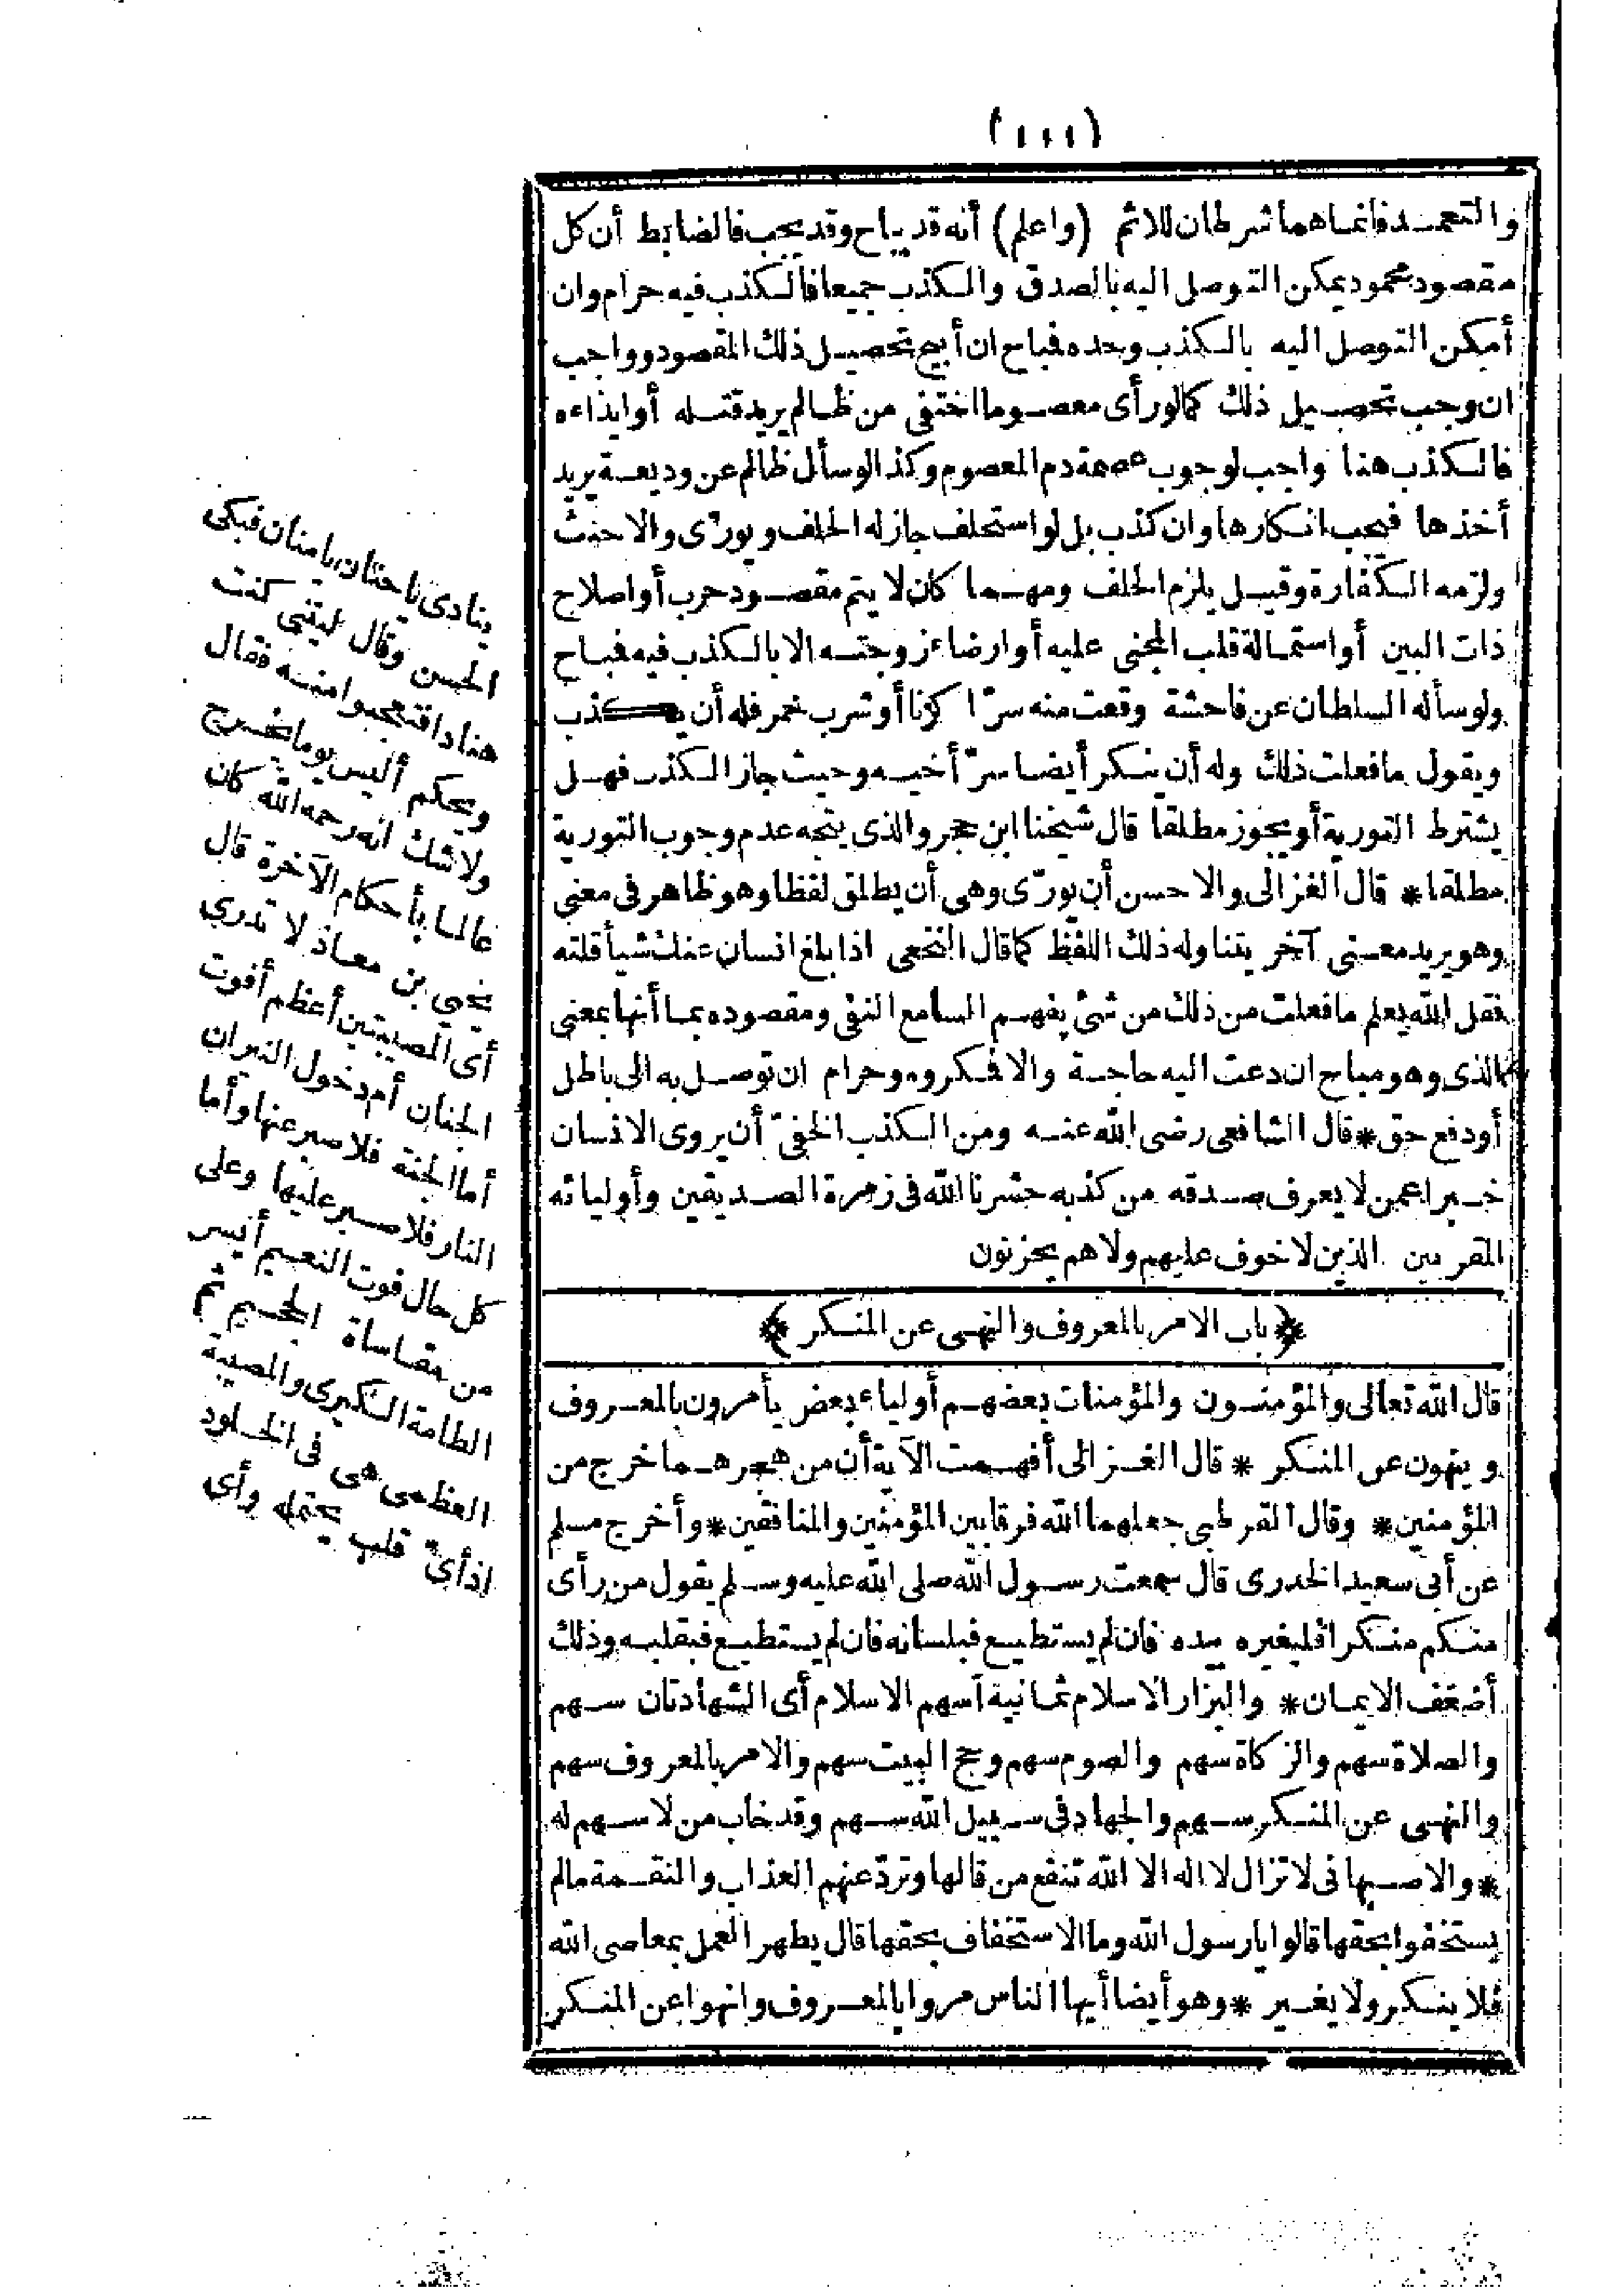 (١١١)
والتعمد فانما هما شرطان للاثم (واعلم) أنه قد يباح وقد يجب فالضابط أن كل
مقصود محمود يمكن التوصل اليه بالصدق والكذب جميعا فالكذب فيه حرام وان
أمكن التوصل اليه بالكذب وحده فباح ان أبيح تحصيل ذلك المقصود وواجب
ان وجب تحصيل ذلك كالو رأى معصوما اختفى من ظالم يريد قتله أو ايذاءه
فالكذب هنا واجب لوجوب عصمة دم المعصوم وكذا لو سأل ظالم عن وديعة يريد
أخذها فيجب انكارها وان كذب بل لو استحلف جاز له الحلف ويورّى والا حنث
ولزمه الكفارة وقيل يلزم الحلف ومهما كان لا يتم مقصود حرب أو اصلاح
ذات البين أو استمالة قلب المجنى عليه أو ارضاء زوجته الا بالكذب فيه فباح
ولو سأله السلطان عن فاحشة وقعت منه سرّا كزنا أو شرب خمر فله أن يكذب
ويقول ما فعلت ذلك وله أن ينكر أيضا سرّ أخيه وحيث جاز الكذب فهل
يشترط التورية أو يجوز مطلقا قال شيخنا ابن حجر والذى يتجه عدم وجوب التورية
مطلقا * قال الغزالى والاحسن أن يورّى وهى أن يطلق لفظا وهو ظاهر فى معنى
وهو يريد معنى آخر يتناوله ذلك اللفظ كما قال النخعى اذا بلغ انسان عنك شيأ قلته
فقل الله يعلم ما فعلت من ذلك من شئ يفهم السامع النفى ومقصوده بما أنها بمعنى
الذى وهو مباح ان دعت اليه حاجة والا فكروه وحرام ان توصل به الى باطل
أو دفع حق * قال الشافعى رضى الله عنه ومن الكذب الخفىّ أن يروى الانسان
خبرا عمن لا يعرف صدقه من كذبه حشرنا الله فى زمرة الصديقين وأوليائه
المقربين الذين لا خوف عليهم ولا هم يحزنون
﴿باب الامر بالمعروف والنهى عن المنكر﴾
قال الله تعالى والمؤمنون والمؤمنات بعضهم أولياء بعض يأمرون بالمعروف
وينهون عن المنكر * قال الغزالى أفهمت الآية أن من هجرهما خرج من
المؤمنين * وقال القرطبى جعلهما الله فرقا بين المؤمنين والمنافقين * وأخرج مسلم
عن أبى سعيد الخدرى قال سمعت رسول الله صلى الله عليه وسلم يقول من رأى
منكم منكرا فليغيره بيده فان لم يستطيع فبلسانه فان لم يستطيع فبقلبه وذلك
أضعف الايمان * والبزار الاسلام ثمانية أسهم الاسلام أى الشهادتان سهم
والصلاة سهم والزكاة سهم والصوم سهم وحج البيت سهم والامر بالمعروف سهم
والنهى عن المنكر سهم والجهاد فى سبيل الله سهم وقد خاب من لا سهم له
* والاصبهانى لا تزال لا اله الا الله تنفع من قالها وتردّ عنهم العذاب والنقمة مالم
يستخفوا بحقها قالوا يا رسول الله وما الاستخفاف بحقها قال يظهر العمل بمعاصى الله
فلا ينكر ولا يغير * وهو أيضا أيها الناس مروا بالمعروف وانهوا عن المنكر
ينادى ياحنان يامنان فبكى
الحسن وقال ليتنى كنت
هنادا فتعجبوا منه فقال
ويحكم أليس يوما يخرج
ولا شك انه رحمه الله كان
عالما بأحكام الآخرة قال
يحيى بن معاذ لا تدرى
أى المصيبتين أعظم أفوت
الجنان أم دخول النيران
أما الجنة فلا صبر عنها وأما
النار فلا صبر عليها وعلى
كل حال فوت النعيم أيسر
من مقاساة الجحيم ثم
الطامة الكبرى والمصيبة
العظمى هى فى الخلود
اذ أىّ قلب يحتمله وأى